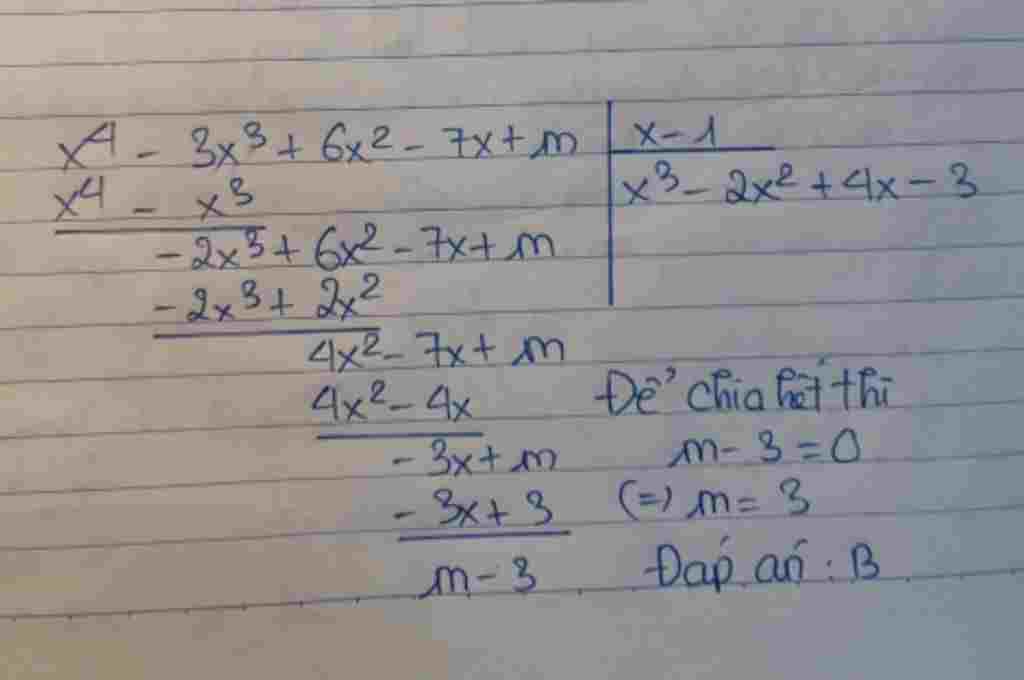 x⁴ - 3x³ + 6x² - 7x + m | x - 1
x⁴ - x³ | x³ - 2x² + 4x - 3
- 2x³ + 6x² - 7x + m
- 2x³ + 2x²
4x² - 7x + m
4x² - 4x
- 3x + m
- 3x + 3
m - 3
Để chia hết thì
m - 3 = 0
(=) m = 3
Đáp án : B